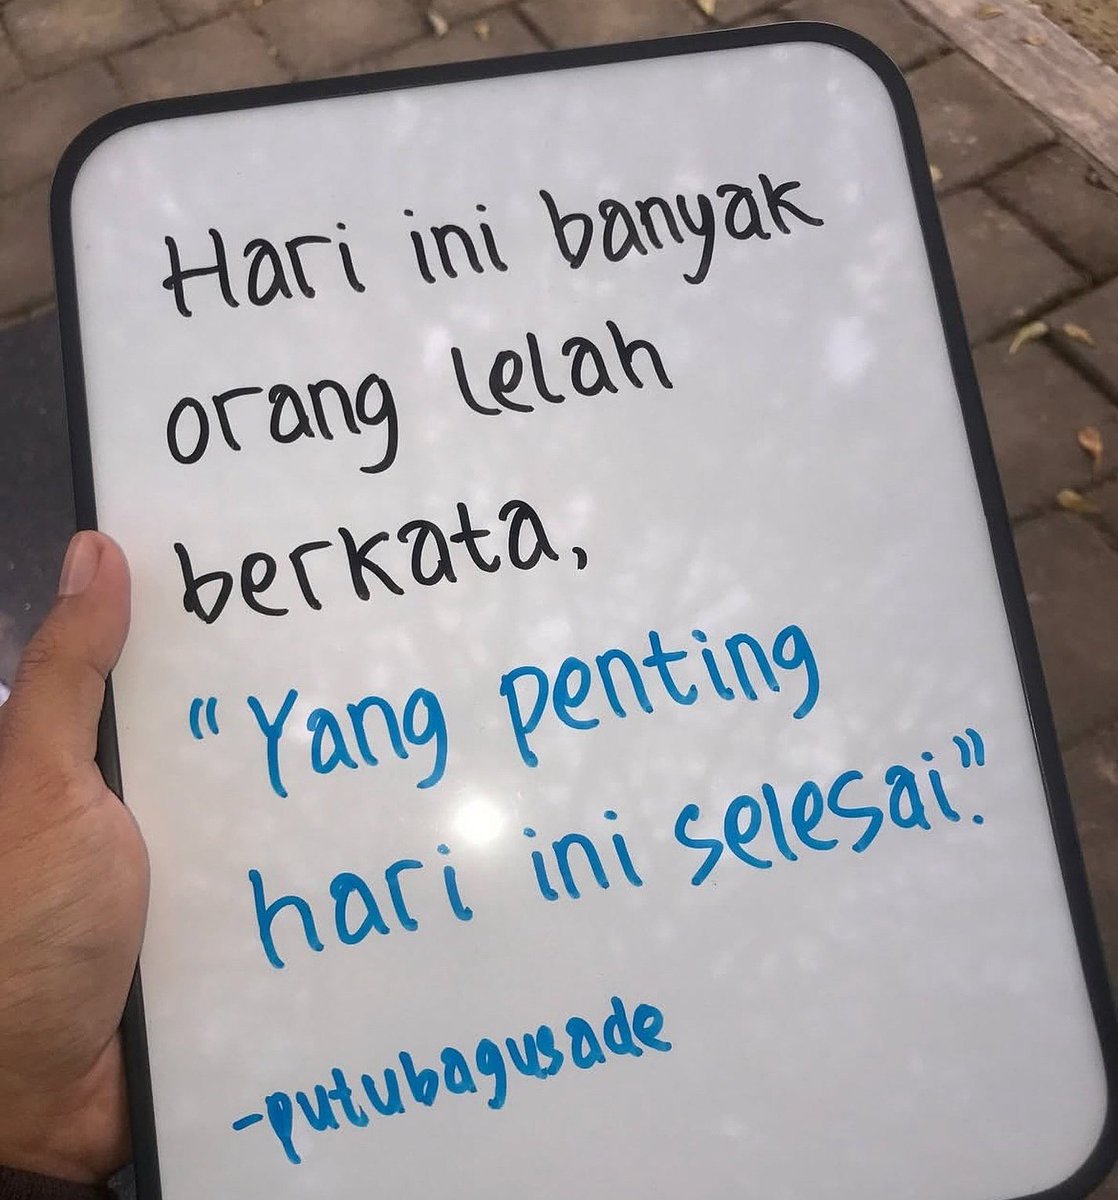 Hari ini banyak
orang lelah
berkata,
“Yang penting
hari ini selesai.”
-putubagusade